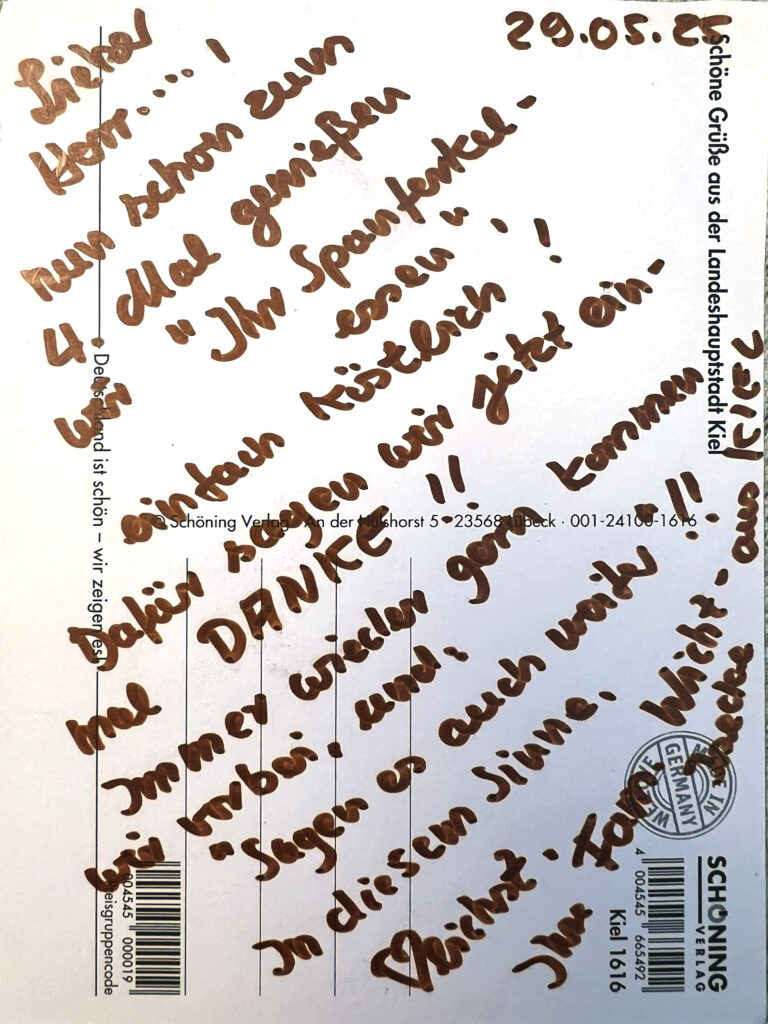 29.05.25
Lieber
Herr....,
nun schon zum
4 Mal genießen
wir "Ihr Spanferkel-
essen"..!
einfach köstlich!
Dafür sagen wir jetzt ein-
mal DANKE!!
Immer wieder gern kommen
wir vorbei, und,
"Sagen es auch weiter"!!
In diesem Sinne,
Ihre Fam. Wicht-
aus Kiel
Schöne Grüße aus der Landeshauptstadt Kiel
Deutschland ist schön – wir zeigen es!
© Schöning Verlag · An der Hülshorst 5 · 23568 Lübeck · 001-24100-1616
WE LOVE MADE IN
GERMANY
SCHÖNING
VERLAG
Kiel 1616
4 004545 665492
Preisgruppencode
004545 000019